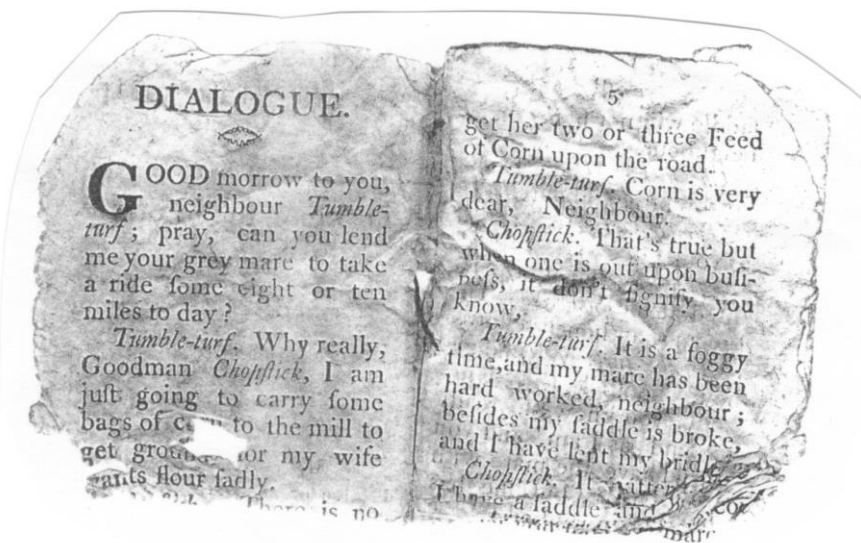 DIALOGUE.
GOOD morrow to you,
neighbour Tumble-
turf; pray, can you lend
me your grey mare to take
a ride ſome eight or ten
miles to day?
Tumble-turf. Why really,
Goodman Chopſtick, I am
juſt going to carry ſome
bags of to the mill to
get for my wife
wants flour ſadly.
There is no
5
get her two or three Feed
of Corn upon the road.
Tumble-turf. Corn is very
dear, Neighbour.
Chopſtick. That's true but
when one is out upon buſi-
neſs, it don't ſignify you
know,
Tumble-turf. It is a foggy
time, and my mare has been
hard worked, neighbour;
beſides my ſaddle is broke,
and I have lent my
Chopſtick. It
I have a ſaddle and
mare